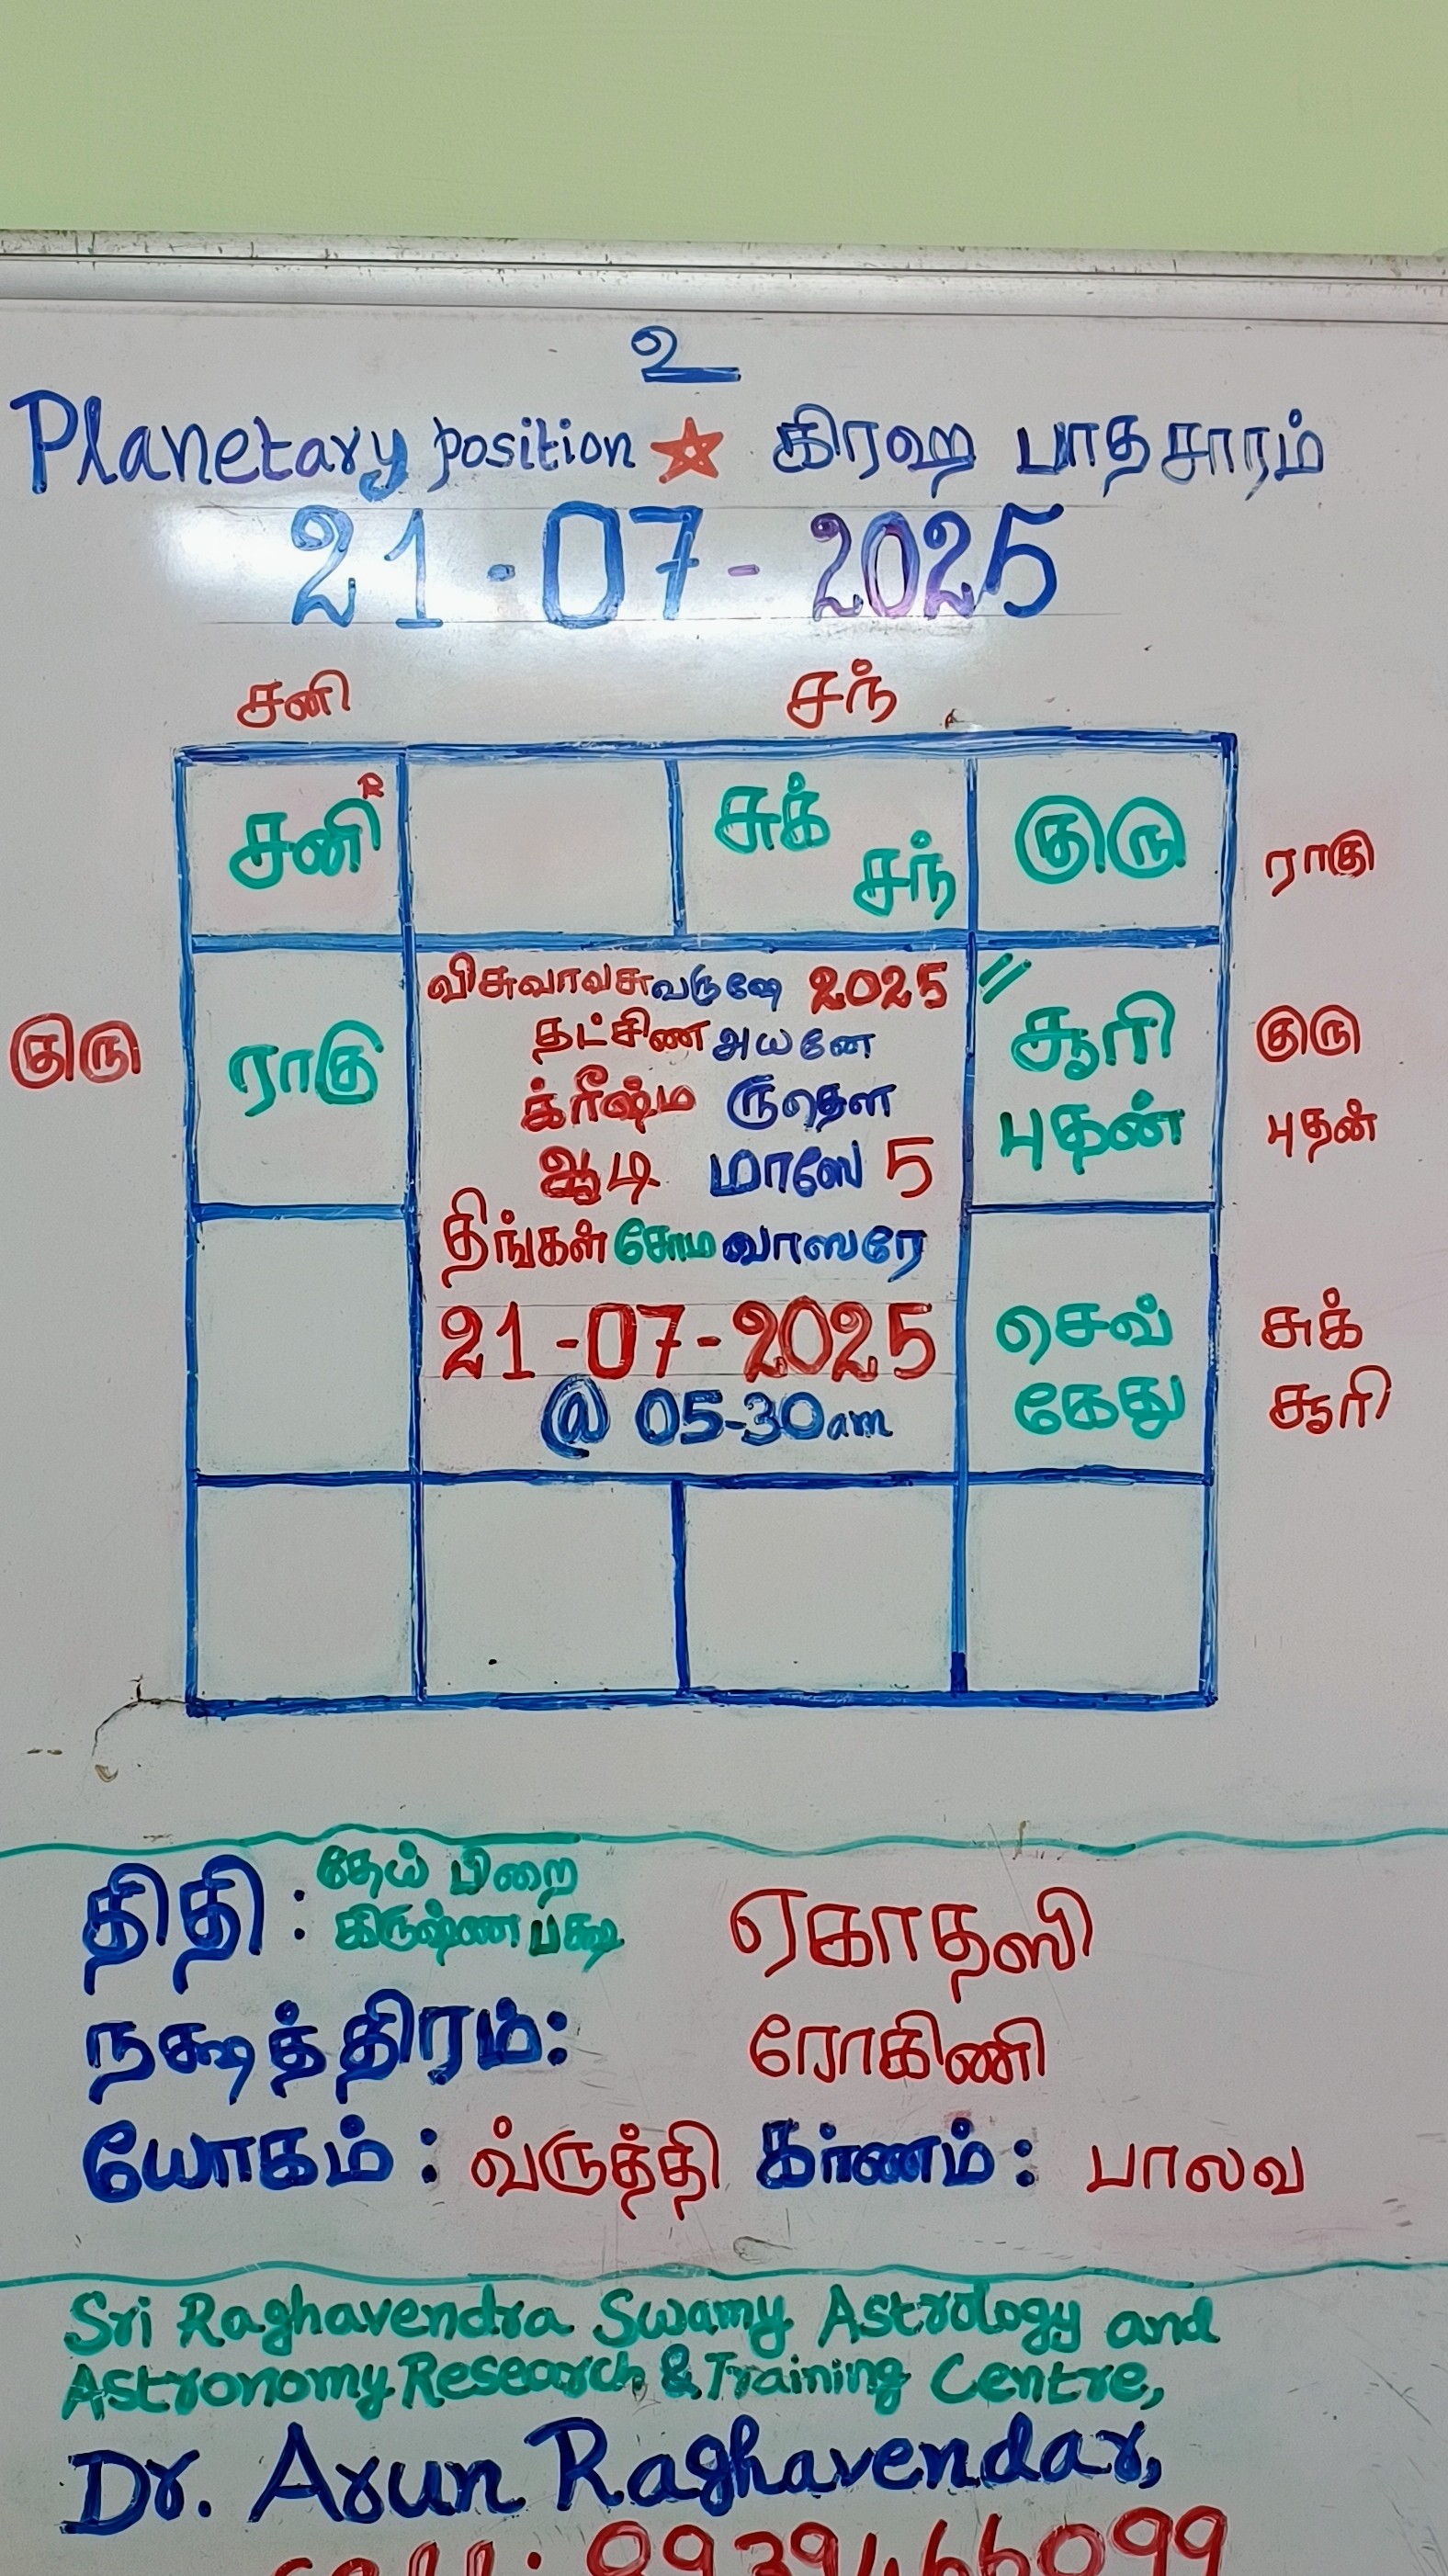 உ
Planetary position ☆ கிரஹ பாதசாரம்
21-07-2025
சனி சந்
சனி R சுக் சந் குரு ராகு
விசுவாவசு வருஷே 2025
தட்சிண அயனே
குரு ராகு சூரி குரு
க்ரீஷ்ம ருதௌ
புதன் புதன்
ஆடி மாஸே 5
திங்கள் சோம வாஸரே
21-07-2025
செவ் சுக்
@ 05-30am
கேது சூரி
திதி : தேய் பிறை
கிருஷ்ண பக்ஷ ஏகாதஸி
நக்ஷத்திரம்: ரோகிணி
யோகம் : வ்ருத்தி கர்ணம் : பாலவ
Sri Raghavendra Swamy Astrology and
Astronomy Research & Training Centre,
Dr. Arun Raghavendar,
cell: 8939466099